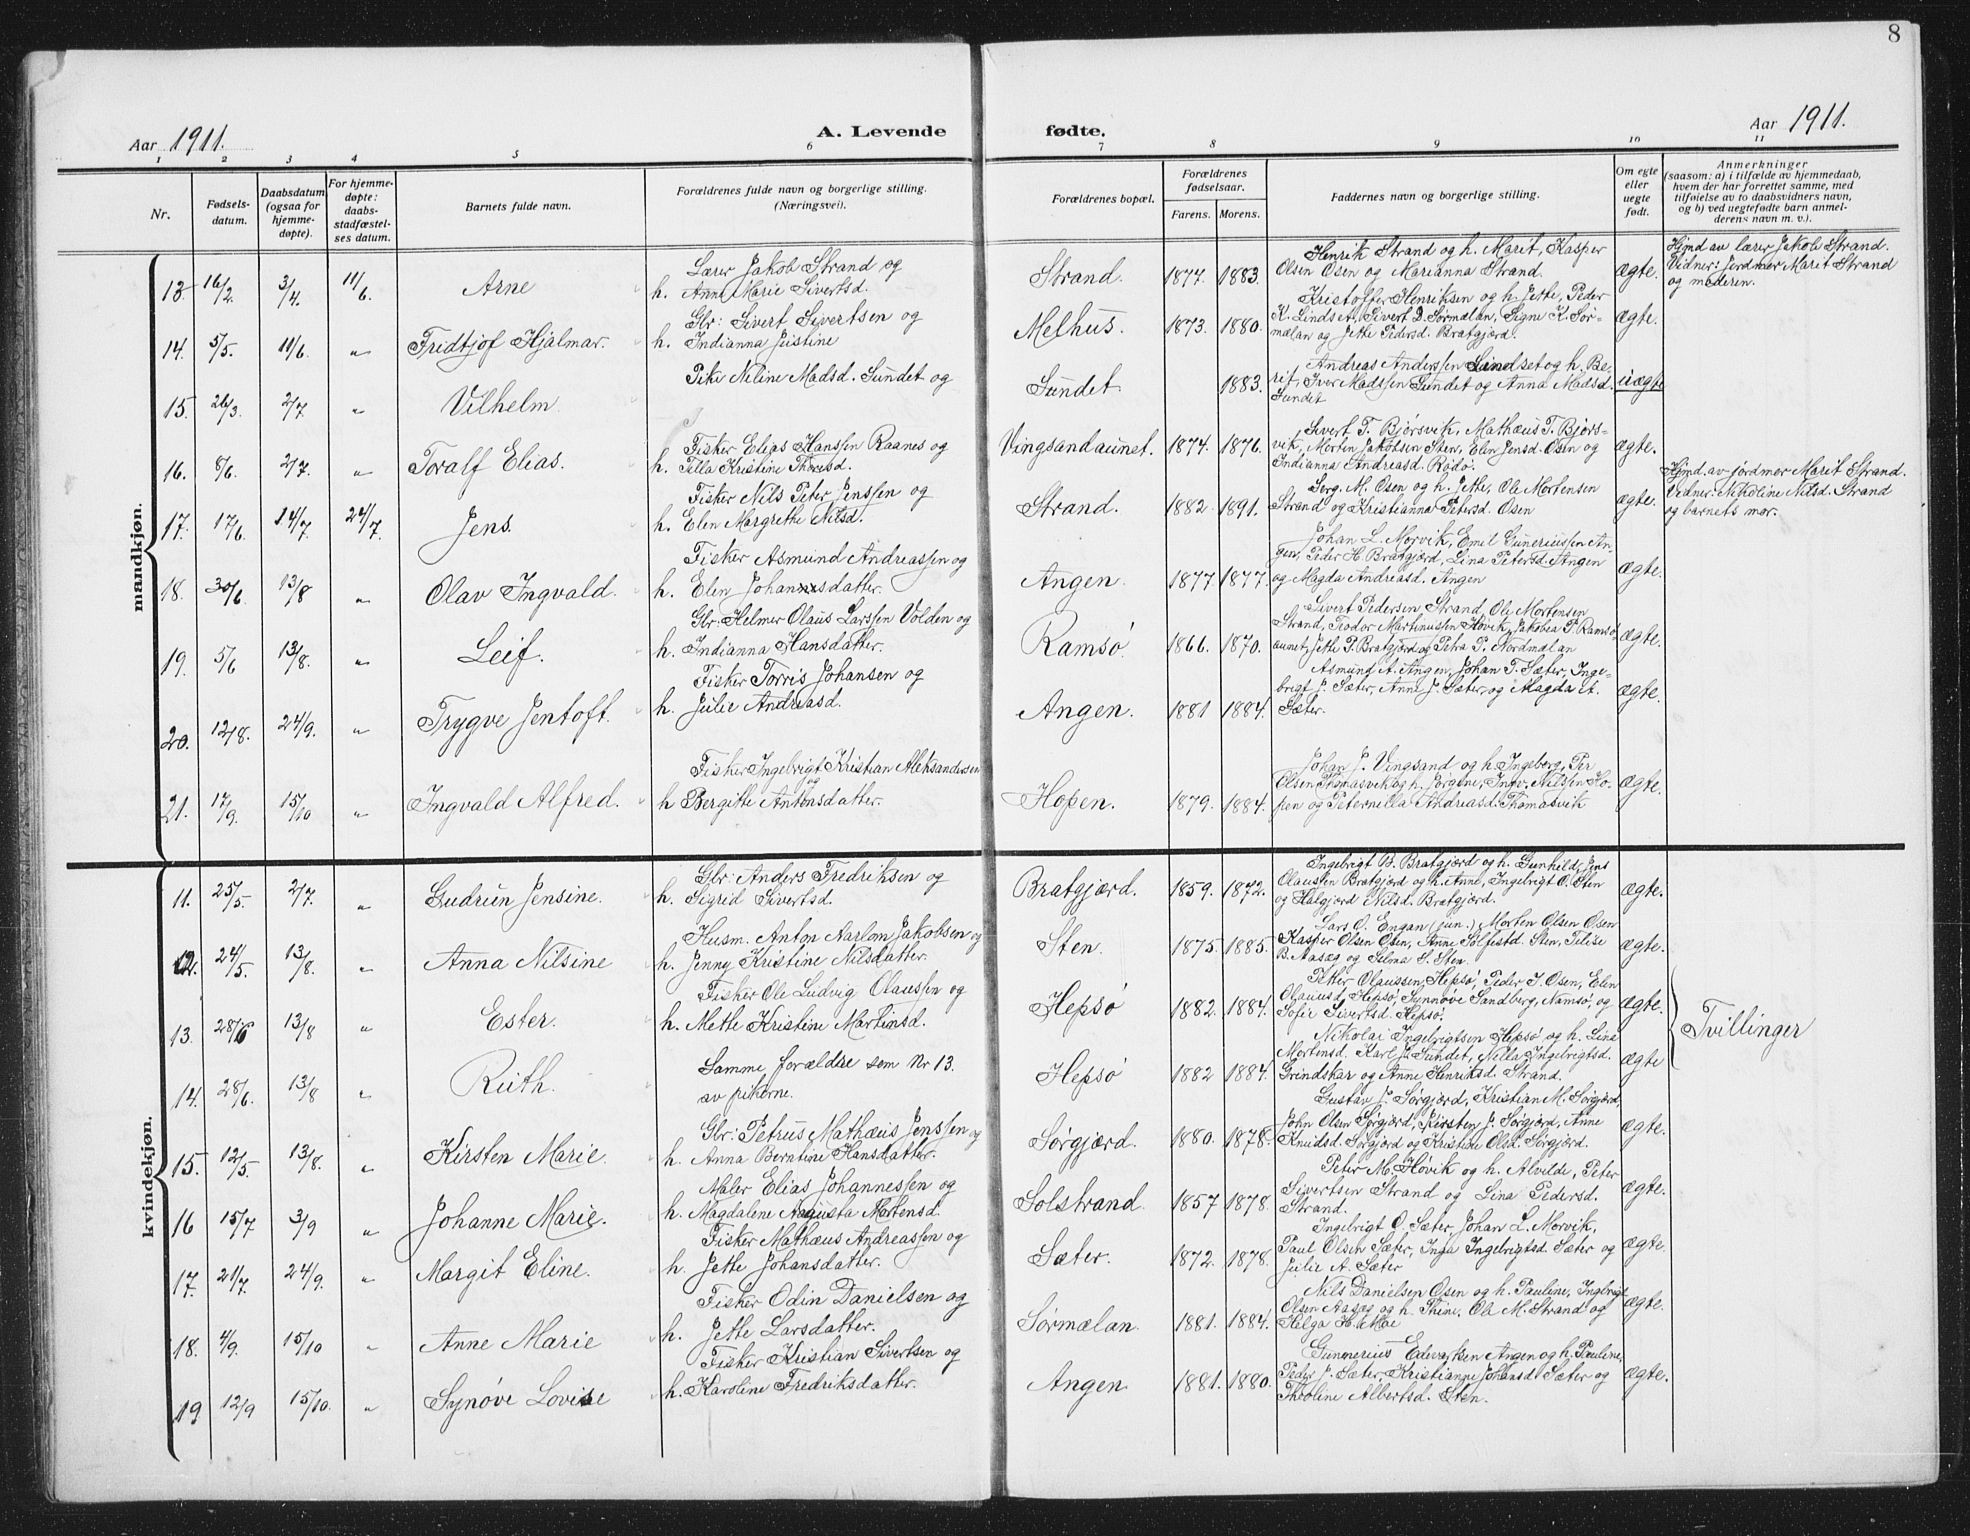 8
Aar 1911.
A. Levende fødte.
Aar 1911.
1 2 3 4 5 6 7 8 9 10 11
Nr.
Fødsels-
datum.
Daabsdatum
(ogsaa for
hjemme-
døpte).
For hjemme-
døpte:
daabs-
stadfæstel-
ses datum.
Barnets fulde navn.
Forældrenes fulde navn og borgerlige stilling.
(Næringsvei).
Forældrenes bopæl.
Forældrenes
fødselsaar.
Farens. Morens.
Faddernes navn og borgerlige stilling.
Om egte
eller
uegte
født.
Anmerkninger
(saasom: a) i tilfælde av hjemmedaab,
hvem der har forrettet samme, med
tilføielse av to daabsvidners navn,
og b) ved uegtefødte barn anmel-
derens navn m. v.).
mandkjøn.
13. 16/2. 3/4. 11/6. Arne
Lærer Jakob Strand og
h. Anne Marie Sivertsd.
Strand. 1877. 1883.
Henrik Strand og h. Marit, Kasper
Olsen Osen og Marianna Strand.
ægte.
Hjmd av lærer Jakob Strand.
Vidner: Jordmor Marit Strand
og moderen.
14. 5/5. 11/6. " Fridtjof Hjalmar.
Gbr: Sivert Sivertsen og
h. Indianna Justine
Melhus. 1873. 1880.
Kristoffer Henriksen og h. Jette, Peder
K. Lindset, Sivert D. Sørmælan, Signe K. Sør-
mælan og Jette Pedersd. Bratgjærd.
ægte.
15. 26/3. 2/7. " Vilhelm.
Pike Neline Madsd. Sundet og
Sundet. 1883.
Andreas Anderssen Lindset og h. Be-
rit, Iver Madssen Sundet og Anna Madsd.
Sundet
uægte
16. 8/6. 2/7. " Toralf Elias.
Fisker Elias Hanssen Raanes og
h. Tilla Kristine Thorsd.
Vingsandaunet. 1874. 1876.
Sivert T. Bjørsvik, Mathæus T. Bjørs-
vik, Morten Jakobsen Sten, Elen Jensd. Osen og
Indianna Andreasd. Rødø.
ægte.
17. 17/6. 14/7. 24/7. Jens.
Fisker Nils Peter Jenssen og
h. Elen Margrethe Nilsd.
Strand. 1882. 1891.
Serg. M. Osen og h. Jette, Ole Mortensen
Strand og Kristianna Petersd. Osen
ægte.
Hjmd. av jordmor Marit Strand.
Vidner: Nikoline Nilsd. Strand
og barnets mor.
18. 30/6. 13/8. " Olav Ingvald.
Fisker Asmund Andreassen og
h. Elen Johannsdatter.
Angen. 1877. 1877.
Johan L. Morvik, Emil Guneriussen An-
gen, Peder H. Bratgjærd, Lina Petersd. Angen
og Magda Andreasd. Angen
ægte.
19. 5/6 13/8. " Leif.
Gbr: Helmer Olaus Larssen Volden og
h. Indianna Hansdatter.
Ramsø. 1866. 1870.
Sivert Pedersen Strand, Ole Mortensen
Strand, Teodor Martinussen Høvik, Jakobia P. Ramsø
aunet, Jette P. Bratgjærd og Petra P. Nordmælan
ægte.
20. 12/8. 24/9. " Trygve Jentoft.
Fisker Torris Johansen og
h. Julie Andreasd.
Angen. 1881 1884.
Asmund A. Angen, Johan T. Sæter, Inge-
brigt J. Sæter, Anne J. Sæter, og Magda A.
Sæter.
ægte.
21. 17/9. 15/10 " Ingvald Alfred.
Fisker Ingebrigt Kristian Aleksandersen
og
h Bergitte Antonsdatter.
Hopen. 1879. 1884.
Johan J. Vingsand og h. Ingeberg, Per
Olsen Thomasvik og h. Jørgine, Ingv. Nilssen Ho-
pen og Peternella Andreasd. Thomasvik
ægte.
kvindekjøn.
11. 25/5. 2/7. " Gudrun Jensine.
Gbr: Anders Fredriksen og
h. Sigrid Sivertsd.
Bratgjærd. 1859. 1872.
Ingebrigt B. Bratgjærd og h. Gunhild, Jens
Olaussen Bratgjærd og h. Anne, Ingebrigt O. Sten
og Halgjærd Nilsd. Bratgjærd.
ægte.
12. 24/5. 13/8. " Anna Nilsine
Husm. Anton Aarlom Jakobsen og
h. Jenny Kristine Nilsdatter.
Sten. 1875 1885.
Lars O. Engan (jun.) Morten Olsen Osen
Kasper Olsen Osen, Anne Solfestd. Sten, Tilise
B. Aasæg og Selma S. Sten.
ægte.
13. 28/6 13/8 " Ester.
Fisker Ole Ludvig Olaussen og
h. Mette Kristine Martinsd.
Hepsø 1882. 1884.
Petter Olaussen, Hepsø, Peder I. Osen, Elen
Olausd, Hepsø, Synnøve Sandberg, Namsø, og
Sofie Sivertsd. Hepsø.
ægte.
Tvillinger
14. 28/6. 13/8 " Ruth.
Samme forældre som Nr 13.
av pikerne.
Hepsø 1882 1884.
Nikolai Ingebrigtsen Hepsø og h. Lina
Mortensd. Karl J. Sundet, Nilla Ingebrigtsd.
Grindskar og Anne Henriksd. Strand.
ægte
15. 12/5 13/8. " Kirsten Marie.
Gbr: Petrus Mathæus Jenssen og
h. Anna Berntine Hansdatter.
Sørgjærd. 1880. 1878.
Gustav J. Sørgjærd, Kristian M. Sørgjærd,
John Olsen Sørgjærd, Kirsten J. Sørgjærd, Anne
Knudsd. Sørgjærd og Kristine Olsd. Sørgjærd.
ægte.
16 15/7 3/9 " Johanne Marie.
Maler Elias Johannessen og
h. Magdalene Augusta Mortensd.
Solstrand. 1857 1878.
Peter M. Høvik og h. Alvilde, Peter
Sivertsen Strand og Lina Pedersd.
Strand.
ægte.
17. 21/7. 24/9. " Margit Eline.
Fisker Mathæus Andreassen og
h. Jette Johansdatter.
Sæter. 1872. 1878.
Ingebrigt O. Sæter, Johan L. Morvik,
Paul Olsen Sæter, Inga Ingebrigtsd. Sæter og
Julie A. Sæter
ægte.
18. 4/9. 15/10 " Anne Marie
Fisker Odin Danielsen og
h. Jette Larsdatter.
Sørmælan. 1881. 1884.
Nils Danielsen Osen og h. Pauline, Ingebrigt
Olsen Aasæg og h. Thine, Ole M. Strand og
Helga H. Moe
ægte.
19 12/9 15/10. " Synøve Lovise
Fisker Kristian Sivertsen og
h. Karoline Fredriksdatter.
Angen 1881. 1880.
Gunnerius Edvarksen Angen og h. Pauline,
Peder J. Sæter, Kristianne Johansd. Sæter og
Theoline Albertsd. Sten.
ægte.